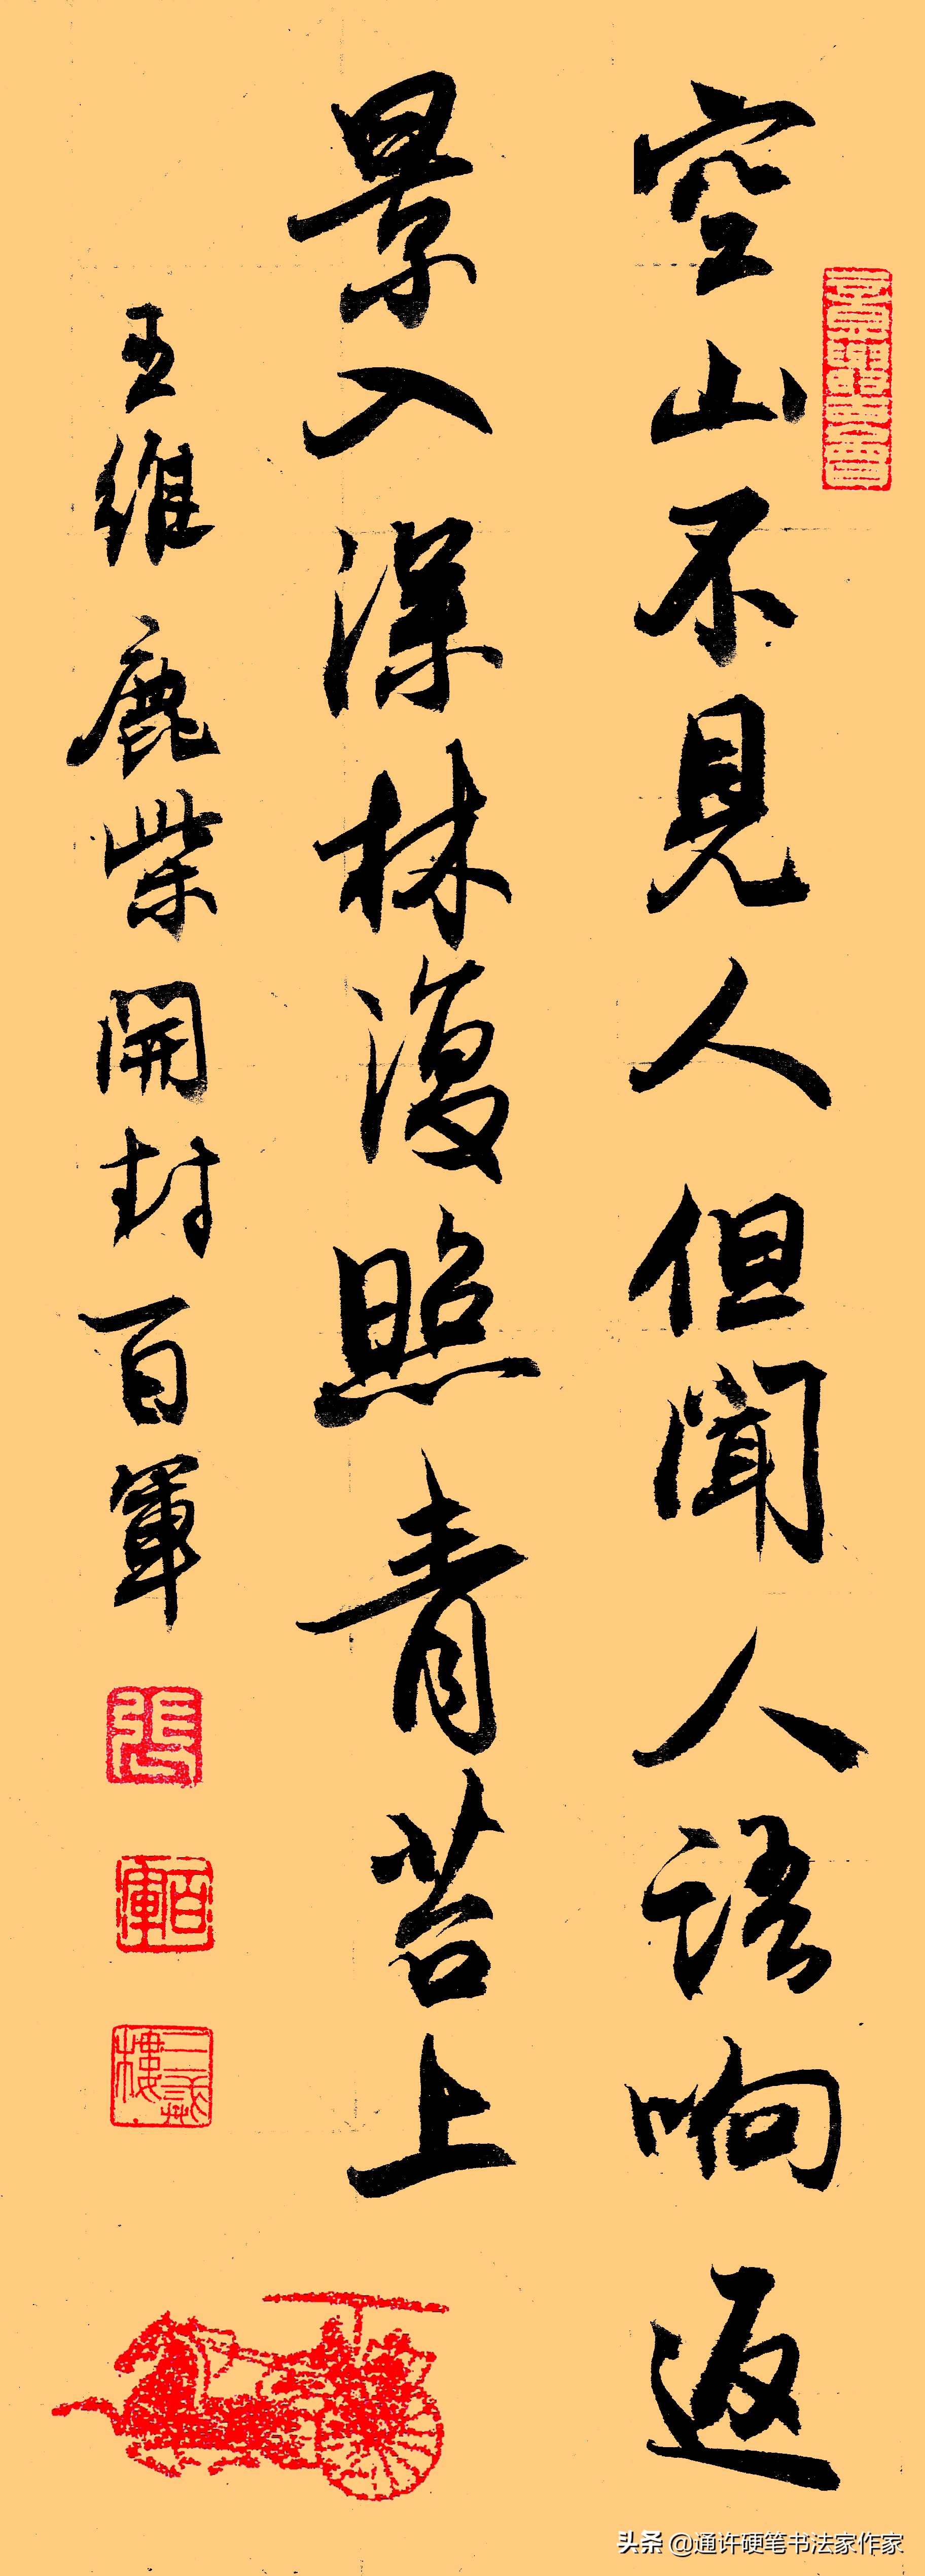 空山不見人但聞人語响返
景入深林復照青苔上
王維鹿柴開封百軍
張
百軍
三戒樓
头条 @通许硬笔书法家作家